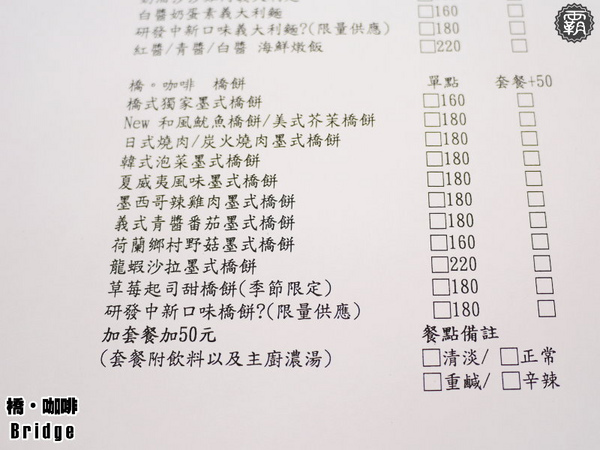 白醬奶蛋素義大利麵 □160
研發中新口味義大利麵?(限量供應) □180
紅醬/青醬/白醬 海鮮燉飯 □220
橋。咖啡 橋餅 單點 套餐+50
橋式獨家墨式橋餅 □160 □
New 和風魷魚橋餅/美式芥茉橋餅 □180 □
日式燒肉/炭火燒肉墨式橋餅 □180 □
韓式泡菜墨式橋餅 □180 □
夏威夷風味墨式橋餅 □180 □
墨西哥辣雞肉墨式橋餅 □180 □
義式青醬番茄墨式橋餅 □180 □
荷蘭鄉村野菇墨式橋餅 □160 □
龍蝦沙拉墨式橋餅 □220 □
草莓起司甜橋餅(季節限定) □180 □
研發中新口味橋餅?(限量供應) □180 □
加套餐加50元 餐點備註
(套餐附飲料以及主廚濃湯) □清淡/ □正常
□重鹹/ □辛辣
橋・咖啡
Bridge
霸